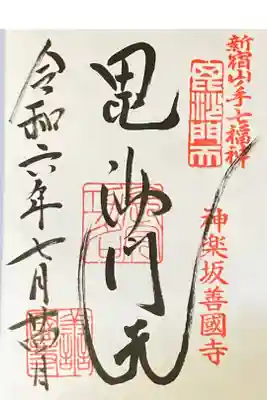 新宿山ノ手七福神
毘沙門天
神楽坂善國寺
毘沙門天
令和六年七月日